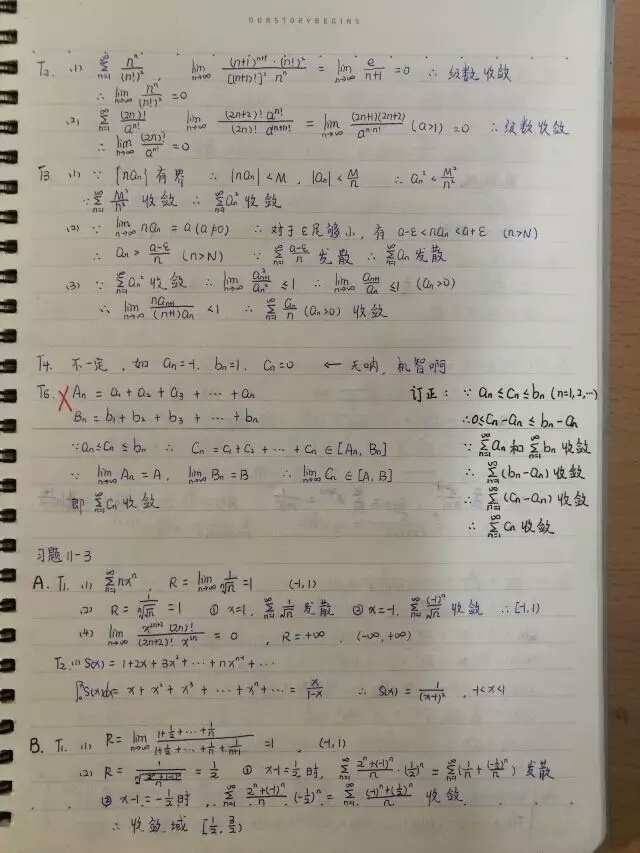 OURSTORYBEGINS
T2. (1) ∑_{n=1}^{∞} n^n/(n!)^2, lim_{n→∞} (n+1)^{n+1}·(n!)^2/([(n+1)!]^2 n^n) = lim_{n→∞} e/(n+1) = 0 ∴ 级数收敛
∴ lim_{n→∞} n^n/(n!)^2 = 0
(2) ∑_{n=1}^{∞} (2n)!/a^{n!} lim_{n→∞} (2n+2)! a^{n!}/((2n)! a^{(n+1)!}) = lim_{n→∞} (2n+1)(2n+2)/a^{n·n!} (a>1) = 0 ∴ 级数收敛
∴ lim_{n→∞} (2n)!/a^{n!} = 0
T3. (1) ∵ {nan} 有界 ∴ |nan| < M, |an| < M/n ∴ an^2 < M^2/n^2
∵ ∑_{n=1}^{∞} M^2/n^2 收敛 ∴ ∑_{n=1}^{∞} an^2 收敛
(2) ∵ lim_{n→∞} nan = a (a≠0) ∴ 对于ε足够小, 有 a-ε < nan < a+ε (n>N)
∴ an > (a-ε)/n (n>N) ∵ ∑_{n=1}^{∞} (a-ε)/n 发散 ∴ ∑_{n=1}^{∞} an 发散
(3) ∵ ∑_{n=1}^{∞} an^2 收敛 ∴ lim_{n→∞} a_{n+1}^2/an^2 ≤ 1 ∴ lim_{n→∞} a_{n+1}/an ≤ 1 (an>0)
∴ lim_{n→∞} na_{n+1}/((n+1)an) < 1 ∴ ∑_{n=1}^{∞} an/n (an>0) 收敛
T4. 不一定, 如 an=-1, bn=1, Cn=0 ← 天呐, 机智啊
T5. ✗ An = a1 + a2 + a3 + ··· + an 订正: ∵ an ≤ Cn ≤ bn (n=1,2,···)
Bn = b1 + b2 + b3 + ··· + bn ∴ 0≤Cn-an ≤ bn-an
∵ an≤Cn ≤ bn ∴ Cn = C1 + C2 + ··· + Cn ∈ [An, Bn] ∵ ∑_{n=1}^{∞} an 和 ∑_{n=1}^{∞} bn 收敛
∵ lim_{n→∞} An = A, lim_{n→∞} Bn = B ∴ lim_{n→∞} Cn ∈ [A, B] ∴ ∑_{n=1}^{∞} (bn-an) 收敛
即 ∑_{n=1}^{∞} Cn 收敛 ∴ ∑_{n=1}^{∞} (Cn-an) 收敛
∴ ∑_{n=1}^{∞} Cn 收敛
习题11-3
A. T1. (1) ∑_{n=1}^{∞} nx^n, R = lim_{n→∞} 1/ⁿ√n = 1 (-1,1)
(2) R = 1/ⁿ√n = 1 ① x=1, ∑_{n=1}^{∞} 1/√n 发散 ② x=-1, ∑_{n=1}^{∞} (-1)^n/√n 收敛 ∴ [-1,1)
(4) lim_{n→∞} x^{2n+2} (2n)!/((2n+2)! x^{2n}) = 0, R = +∞, (-∞,+∞)
T2. (1) S(x) = 1+2x+3x^2+···+nx^{n-1}+···
∫_0^x S(x)dx = x + x^2 + x^3 + ··· + x^n + ··· = x/(1-x) ∴ S(x) = 1/(x-1)^2, -1<x<1
B. T1. (1) R = lim_{n→∞} (1+1/2+···+1/n)/(1+1/2+···+1/n+1/(n+1)) = 1, (-1,1)
(2) R = 1/ⁿ√(2^n+(-1)^n) = 1/2 ① x-1=1/2 时, ∑_{n=1}^{∞} (2^n+(-1)^n)/n · (1/2)^n = ∑_{n=1}^{∞} (1/n + (-1/2)^n/n) 发散
② x-1=-1/2 时, ∑_{n=1}^{∞} (2^n+(-1)^n)/n · (-1/2)^n = ∑_{n=1}^{∞} ((-1)^n+(1/2)^n)/n 收敛
∴ 收敛域 [1/2, 3/2)